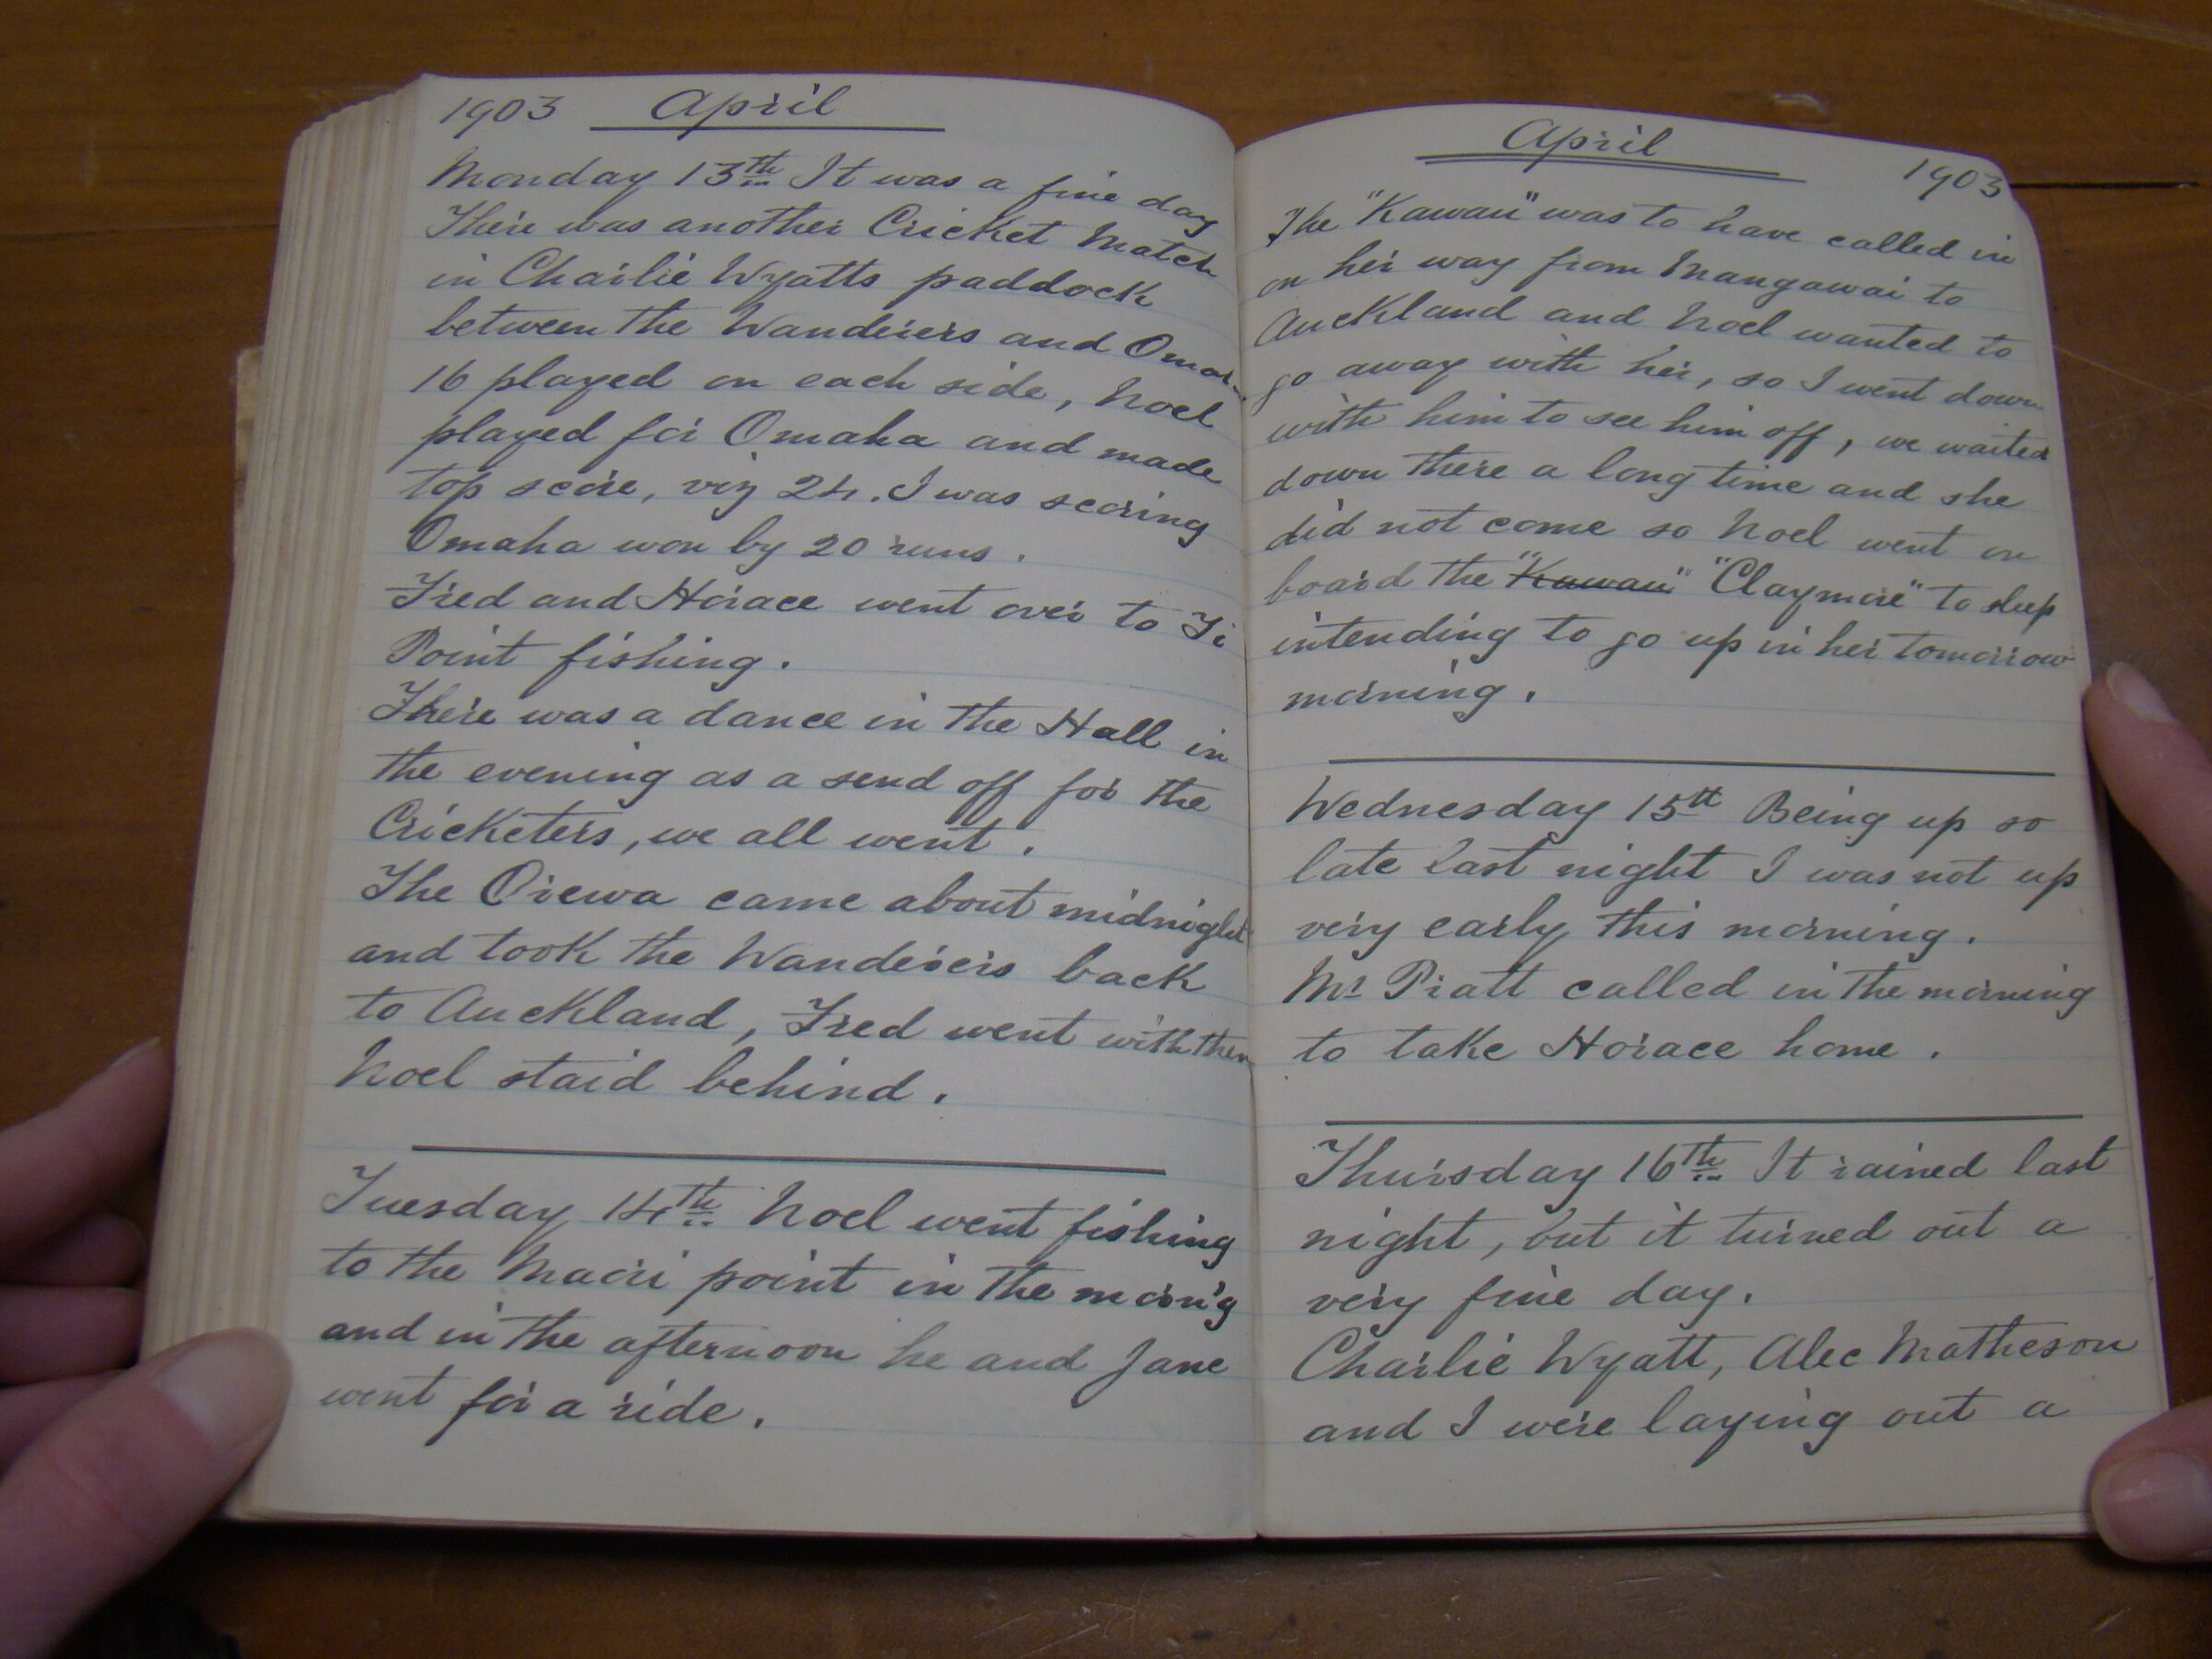 1903 April
Monday 13th It was a fine day
There was another Cricket Match
in Charlie Wyatts paddock
between the Wanderers and Omaha
16 played on each side, Noel
played for Omaha and made
top score, viz 24. I was scoring
Omaha won by 20 runs.
Fred and Horace went over to Ti
Point fishing.
There was a dance in the Hall in
the evening as a send off for the
Cricketers, we all went.
The Orewa came about midnight
and took the Wanderers back
to Auckland, Fred went with them
Noel staid behind.
Tuesday 14th Noel went fishing
to the Maori point in the morn'g
and in the afternoon he and Jane
went for a ride.
April 1903
The "Kawau" was to have called in
on her way from Mangawai to
Auckland and Noel wanted to
go away with her, so I went down
with him to see him off, we waited
down there a long time and she
did not come so Noel went on
board the "Kawau" "Claymore" to sleep
intending to go up in her tomorrow
morning.
Wednesday 15th Being up so
late last night I was not up
very early this morning.
Mr Pratt called in the morning
to take Horace home.
Thursday 16th It rained last
night, but it turned out a
very fine day.
Charlie Wyatt, Alec Matheson
and I were laying out a